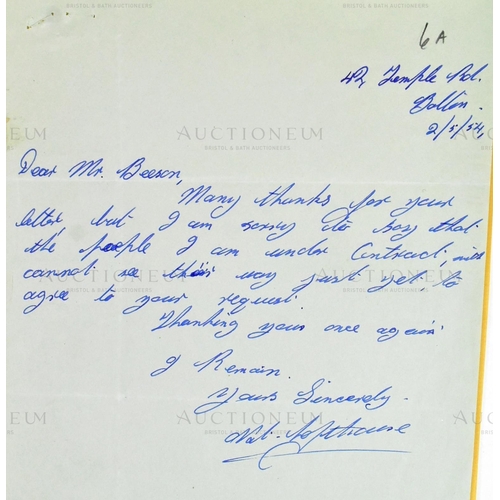 BRISTOL & BATH AUCTIONEERS
6A
42, Temple Rd.
Bolton.
2/5/54,
AUCTIONEUM
BRISTOL & BATH AUCTIONEERS
Dear Mr. Beeson,
Many thanks for your
letter, but I am sorry to say that
the people I am under Contract, with
cannot see their way just yet to
agree to your request.
Thanking your once again.
I Remain.
Yours Sincerely.
Nat. Lofthouse